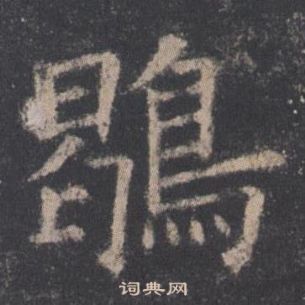 鶡
词典网